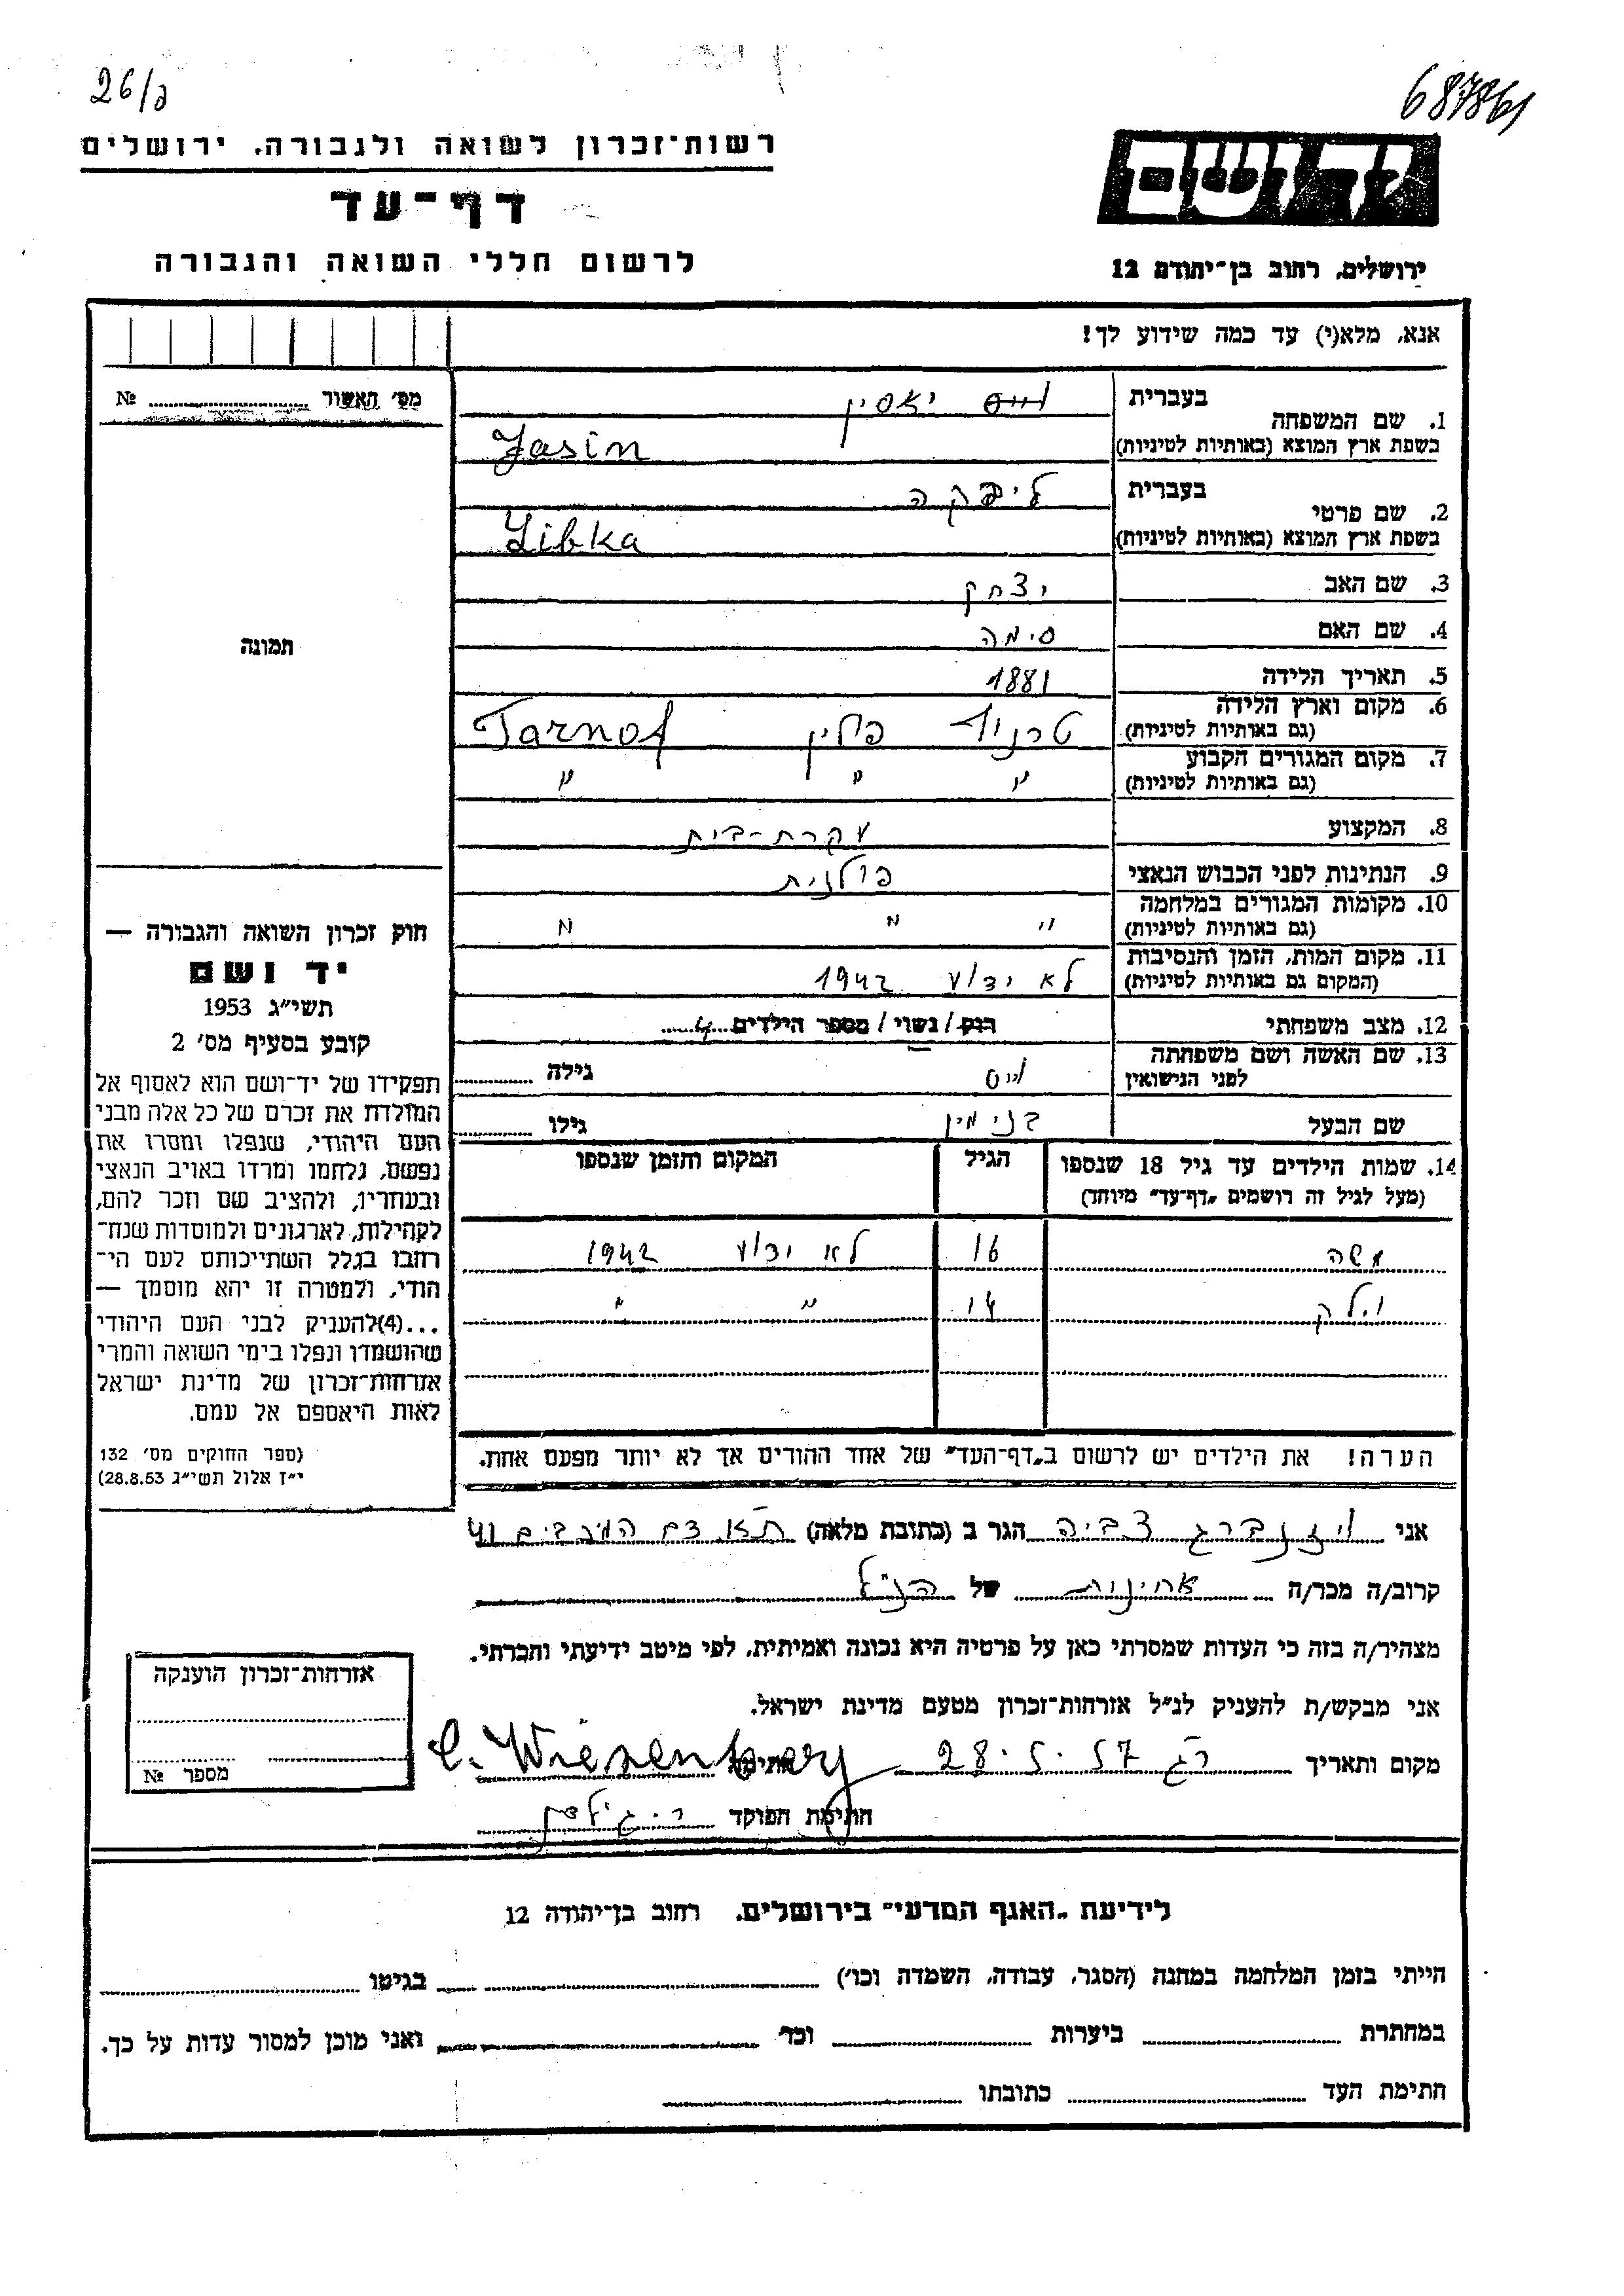 26/ג
687861
רשות־זכרון לשואה ולגבורה, ירושלים
דף־עד
לרשום חללי השואה והגבורה
יד ושם
ירושלים, רחוב בן־יהודה 12
אנא, מלא(י) עד כמה שידוע לך!
מס׳ האשור № 
1. שם המשפחה
בעברית ווייס יאסין
בשפת ארץ המוצא (באותיות לטיניות) Jasin
2. שם פרטי
בעברית ליבקה
בשפת ארץ המוצא (באותיות לטיניות) Libka
3. שם האב יצחק
4. שם האם סימה
5. תאריך הלידה 1881
6. מקום וארץ הלידה טרנוף פולין Tarnof
(גם באותיות לטיניות)
7. מקום המגורים הקבוע " " "
(גם באותיות לטיניות)
8. המקצוע עקרת-בית
9. הנתינות לפני הכבוש הנאצי פולנית
10. מקומות המגורים במלחמה " " "
(גם באותיות לטיניות)
11. מקום המות, הזמן והנסיבות לא ידוע 1942
(המקום גם באותיות לטיניות)
12. מצב משפחתי רוק/נשוי/מספר הילדים 4
13. שם האשה ושם משפחתה
לפני הנישואין וייס גילה
שם הבעל בנימין גילו
14. שמות הילדים עד גיל 18 שנספו הגיל המקום והזמן שנספו
(מעל לגיל זה רושמים „דף־עד״ מיוחד)
משה 16 לא ידוע 1942
14 " "
הערה! את הילדים יש לרשום ב„דף־העד״ של אחד ההורים אך לא יותר מפעם אחת.
תמונה
חוק זכרון השואה והגבורה —
יד ושם
תשי״ג 1953
קובע בסעיף מס׳ 2
תפקידו של יד־ושם הוא לאסוף אל
המולדת את זכרם של כל אלה מבני
העם היהודי, שנפלו ומסרו את
נפשם, נלחמו ומרדו באויב הנאצי
ובעוזריו, ולהציב שם וזכר להם,
לקהילות, לארגונים ולמוסדות שנח־
רבו בגלל השתייכותם לעם הי־
הודי, ולמטרה זו יהא מוסמך —
...(4)להעניק לבני העם היהודי
שהושמדו ונפלו בימי השואה והמרי
אזרחות־זכרון של מדינת ישראל
לאות היאספם אל עמם.
(ספר החוקים מס׳ 132
י״ז אלול תשי״ג 28.8.53)
אני ויזנברג צביה הגר ב (כתובת מלאה) 41
קרוב/ה מכר/ה אחינית של הנ״ל
מצהיר/ה בזה כי העדות שמסרתי כאן על פרטיה היא נכונה ואמיתית, לפי מיטב ידיעתי והכרתי.
אני מבקש/ת להעניק לנ״ל אזרחות־זכרון מטעם מדינת ישראל.
מקום ותאריך רג 28.5.57 חתימה C. Wiesenberg
חתימת הפוקד
אזרחות־זכרון הוענקה
מספר №
לידיעת „האגף המדעי״ בירושלים, רחוב בן־יהודה 12
הייתי בזמן המלחמה במחנה (הסגר, עבודה, השמדה וכו׳) בגיטו
במחתרת ביערות וכו׳ ואני מוכן למסור עדות על כך.
חתימת העד כתובתו